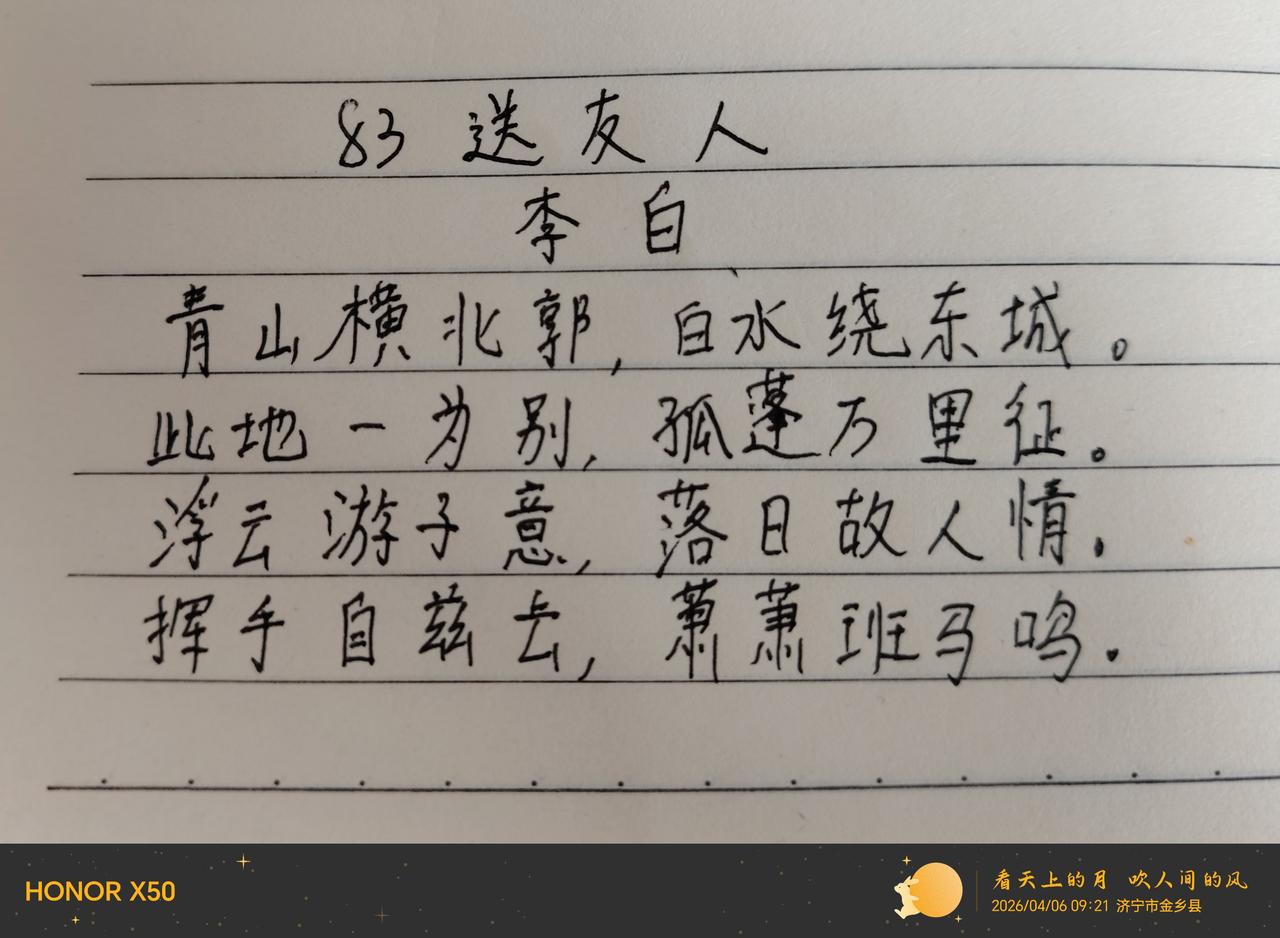 83 送友人
李白
青山横北郭,白水绕东城。
此地一为别,孤蓬万里征。
浮云游子意,落日故人情.
挥手自兹去,萧萧班马鸣.
HONOR X50
看天上的月 吹人间的风
2026/04/06 09:21 济宁市金乡县